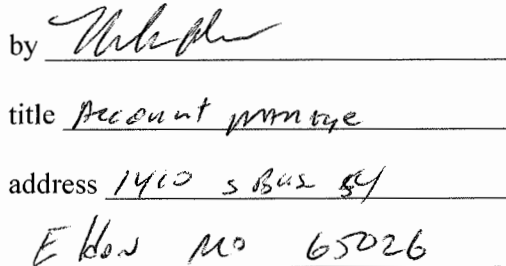 by
title Account manage
address 1410 S Bus 54
Eldon MO 65026